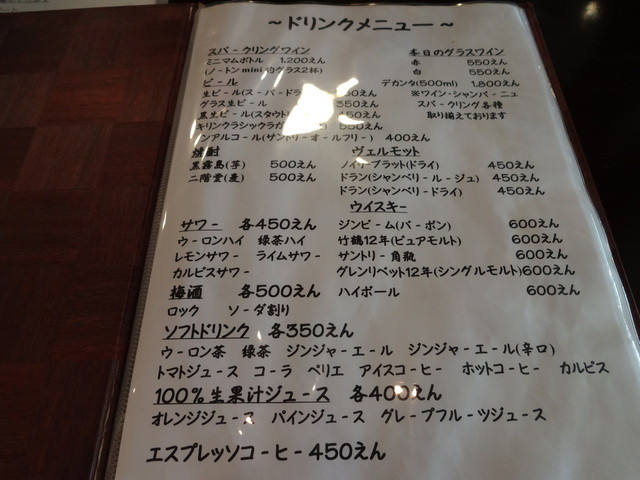 ～ドリンクメニュー～
スパークリングワイン
ミニマムボトル 1,200えん
(ノートンmini約グラス2杯)
ビール
生ビール(スーパードラ 50えん
グラス生ビール 350えん
黒生ビール(スタウト
キリンクラシックラガ 550えん
ンアルコール(サントリーオールフリー) 400えん
焼酎
黒霧島(芋) 500えん
二階堂(麦) 500えん
サワー 各450えん
ウーロンハイ 緑茶ハイ
レモンサワー ライムサワー
カルピスサワー
梅酒 各500えん
ロック ソーダ割り
本日のグラスワイン
赤 550えん
白 550えん
デカンタ(500ml) 1,800えん
※ワイン・シャンパーニュ
スパークリング各種
取り揃えております
ヴェルモット
ノイリープラット(ドライ) 450えん
ドラン(シャンベリールージュ) 450えん
ドラン(シャンベリードライ) 450えん
ウイスキー
ジンビーム(バーボン) 600えん
竹鶴12年(ピュアモルト) 600えん
サントリー角瓶 600えん
グレンリベット12年(シングルモルト)600えん
ハイボール 600えん
ソフトドリンク 各350えん
ウーロン茶 緑茶 ジンジャーエール ジンジャーエール(辛口)
トマトジュース コーラ ペリエ アイスコーヒー ホットコーヒー カルピス
100%生果汁ジュース 各400えん
オレンジジュース パインジュース グレープフルーツジュース
エスプレッソコーヒー450えん